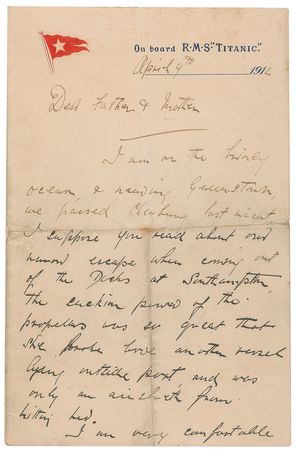 On board R.M.S. "TITANIC."
April 9th 1912
Dear Father & Mother
I am on the briney
ocean & nearing Queenstown,
we passed Cherbourg last night,
I suppose you read about our
narrow escape when coming out
of the Docks at Southampton,
the suction power of the
propellers was so great that
she broke loose another vessel
lying outside port, and was
only an from
hitting her.
I am very comfortable